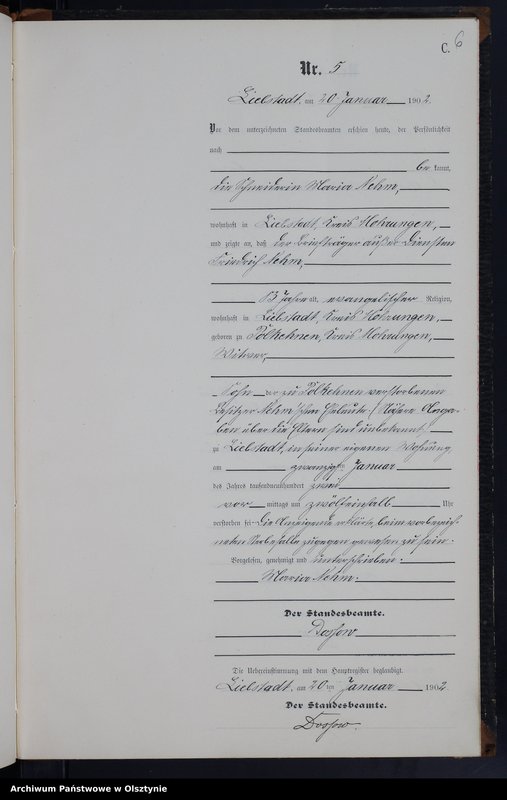 C. 6
Nr. 5
Liebstadt, am 20 Januar 1902.
Vor dem unterzeichneten Standesbeamten erschien heute, der Persönlichkeit
nach
be kannt,
die Schneiderin Maria Nehm,
wohnhaft in Liebstadt, Kreis Mohrungen,
und zeigte an, daß der Briefträger außer Diensten
Friedrich Nehm,
Jahre alt, evangelischer Religion,
wohnhaft in Liebstadt, Kreis Mohrungen,
geboren zu Polkehnen, Kreis Mohrungen,
Witwer,
Sohn der zu Polkehnen verstorbenen
Besitzer Nehm'schen Eheleute (Nähere Anga-
ben über die Eltern sind unbekannt
zu Liebstadt, in seiner eigenen Wohnung
am zwanzigsten Januar
des Jahres tausendneunhundert zwei
vor mittags um zwölfeinhalb Uhr
verstorben sei. Die Anzeigende erklärte, beim vorbezeich-
neten Sterbefalle zugegen gewesen zu sein.
Vorgelesen, genehmigt und unterschrieben.
Maria Nehm.
Der Standesbeamte.
Dossow
Die Uebereinstimmung mit dem Hauptregister beglaubigt.
Liebstadt, am 20ten Januar 1902.
Der Standesbeamte.
Dossow.
Archiwum Państwowe w Olsztynie